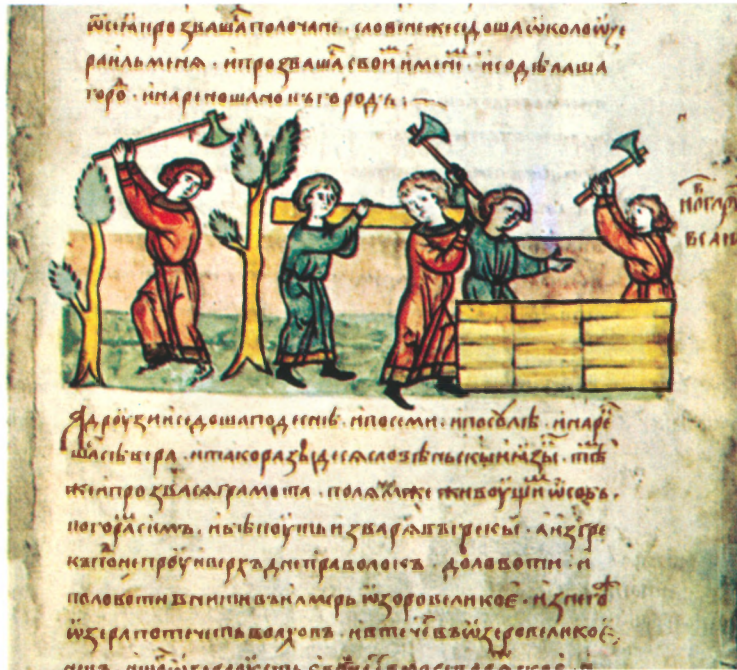 ѿсеꙗ прозвашаⷭ полочане · словене же седоша ѡколо ѡзе
ра ильменя · и прозвашаⷭ свои имене · и содѣлаша
гороⷣ · и нарекоша новъгородъ :
Ядроузии седоша по деснѣ · и по семи · и по соулѣ · и наре
шаⷭ сѣвера · и тако разыдеся словѣньскыи языⷦ · тѣⷨ
же и прозвася грамота · поляноⷨ же живоущиⷨ ѡсобь ·
по гораⷨ симъ · и бѣ поуть из варягъ въ грекы · а из гре
къ по непроу и верхъ днепра волокъ · до ловоти · и
по ловоти внити въ илмерь ѡзоро великоє · из него
ѡзера потечеть волховъ · и втечеⷮ въ ѡзеро великоє,